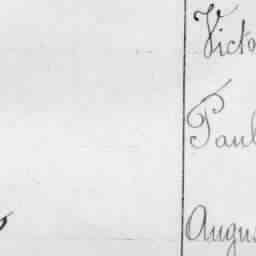 Victo
Paul
Augus